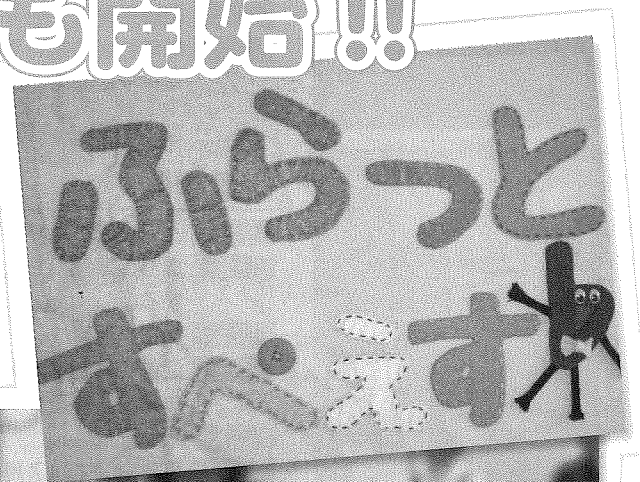 も開始!!
ふらっと
すぺぇす